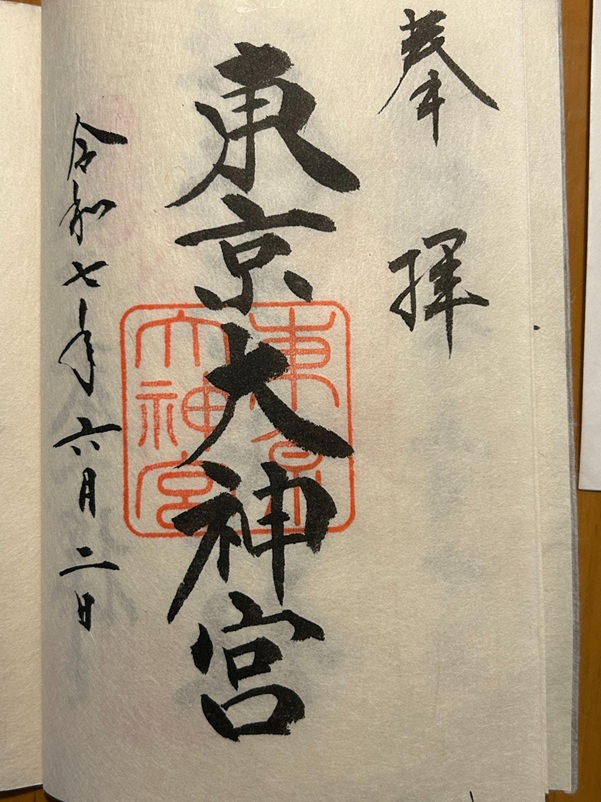 奉拝
東京大神宮
東京大神宮
令和七年六月二日